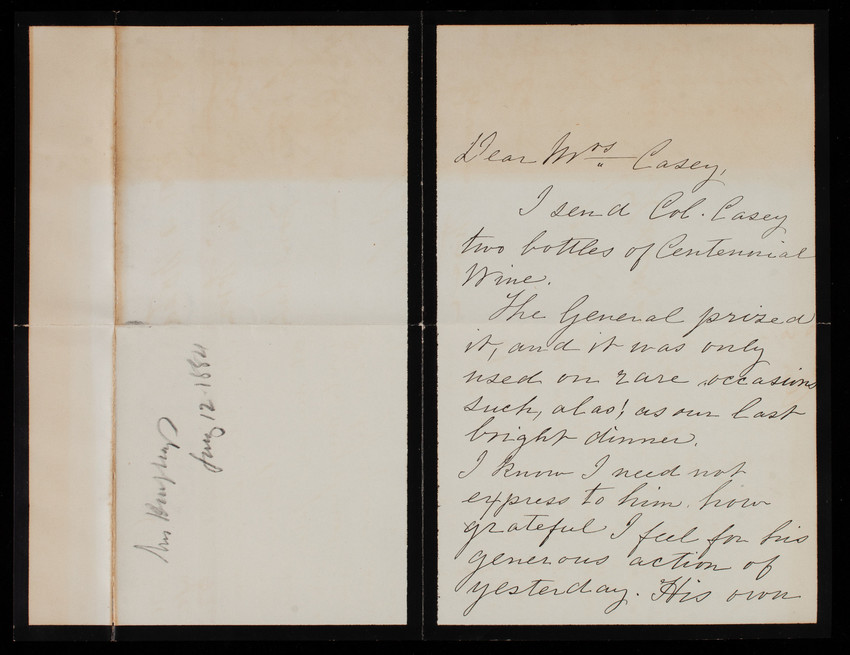 Mrs Humphreys
Jany 12-1884
Dear Mrs Casey,
I send Col. Casey
two bottles of Centennial
Wine.
The General prized
it, and it was only
used on rare occasions
such, alas! as our last
bright dinner.
I know I need not
express to him how
grateful I feel for his
generous action of
yesterday. His own